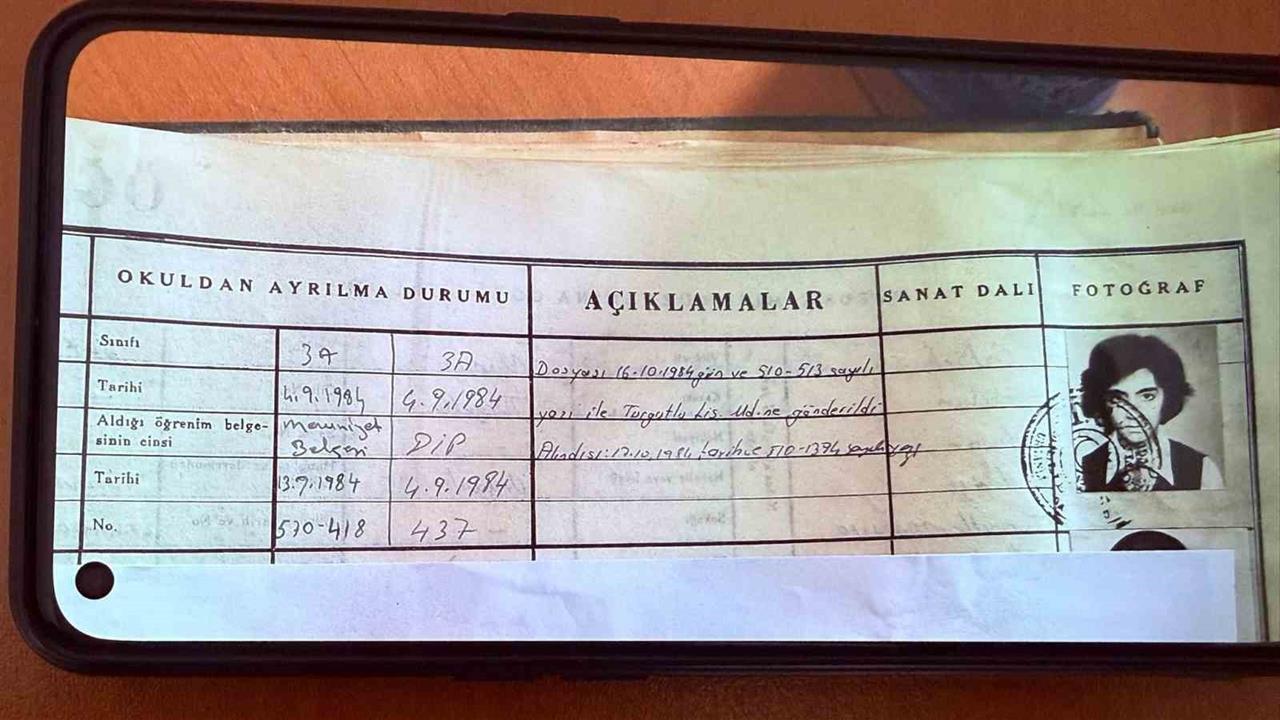 OKULDAN AYRILMA DURUMU AÇIKLAMALAR SANAT DALI FOTOĞRAF
Sınıfı 3A 3A
Dosyası 16-10-1984 gün ve 510-513 sayılı
Tarihi 4.9.1984 4.9.1984
yazı ile Turgutlu Lis. Md.ne gönderildi
Aldığı öğrenim belge-
sinin cinsi
Mezuniyet
Belgesi DİP
Alındısı: 17.10.1984 tarih ve 510-1374
Tarihi 13.9.1984 4.9.1984
No. 570-418 437